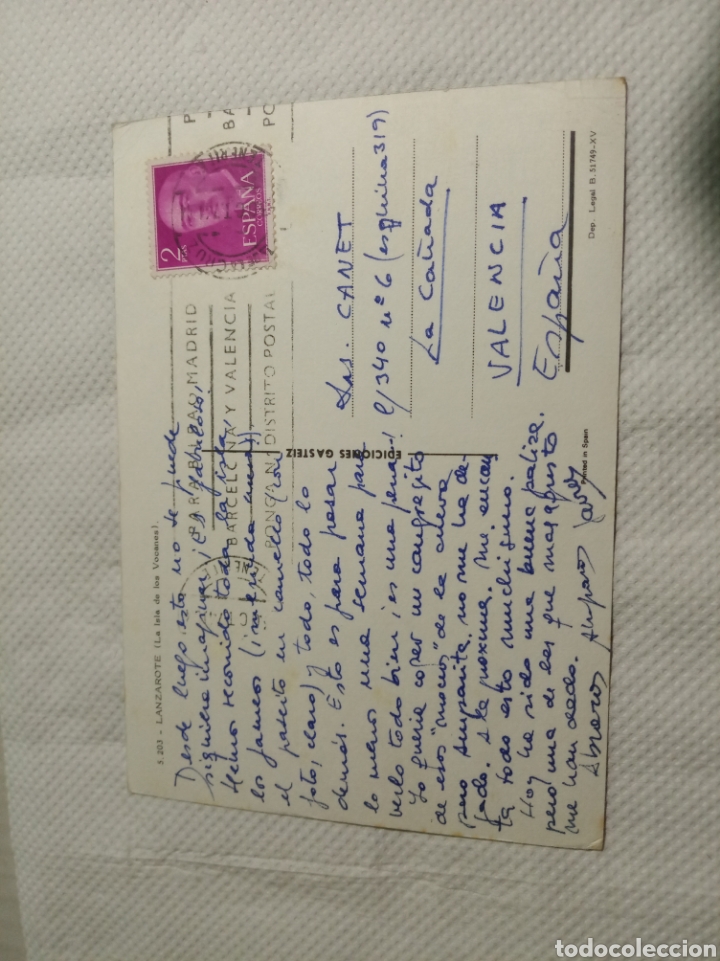 S. 203 - LANZAROTE (La Isla de los Vocanes).
Desde luego esto no se puede
siquiera imaginar ¡es fabuloso,
Hemos recorrido toda la isla,
los Jameos (¡inmenda cueva!),
el paseito en camello (con
foto, claro) y todo, todo lo
demás. Esto es para pasar
lo menos una semana para
verlo todo bien ¡es una pena!
Yo queria coger un cangrejito
de esos "monos" de la cueva
pero Amparito no me ha de-
jado. A la proxima. Me encan
ta todo esto muchisimo.
Hoy ha sido una buena paliza.
pero una de las que mas a gusto
me han dado.
Abrazos Amparo
EDICIONES GASTEIZ
2
PTAS
ESPAÑA
CORREOS
PARA MADRID
BARCELONA Y VALENCIA
PONGAN DISTRITO POSTAL
P
BA
PO
Sras. CANET
C/340 nº 6 (esquina 319)
La Cañada
VALENCIA
España
Printed in Spain
Dep. Legal B. 51749-XV
todocoleccion